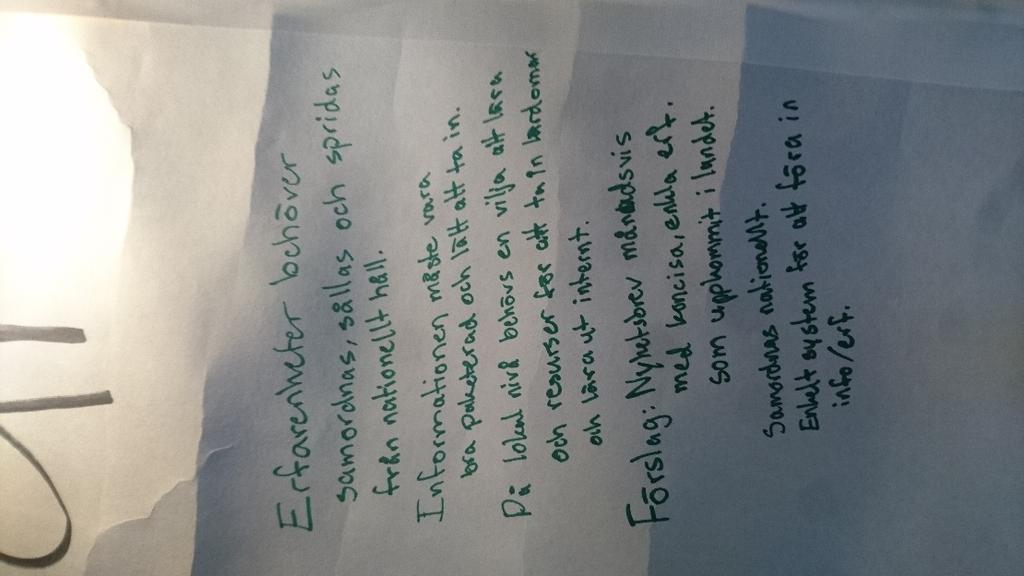 Erfarenheter behöver
samordnas, sållas och spridas
från nationellt håll.
Informationen måste vara
bra paketerad och lätt att ta in.
På lokal nivå behövs en vilja att lära
och resurser för att ta in lärdomar
och lära ut internt.
Förslag: Nyhetsbrev månadsvis
med koncisa, enkla erf.
som uppkommit i landet.
Samordnas nationellt.
Enkelt system för att föra in
info/erf.